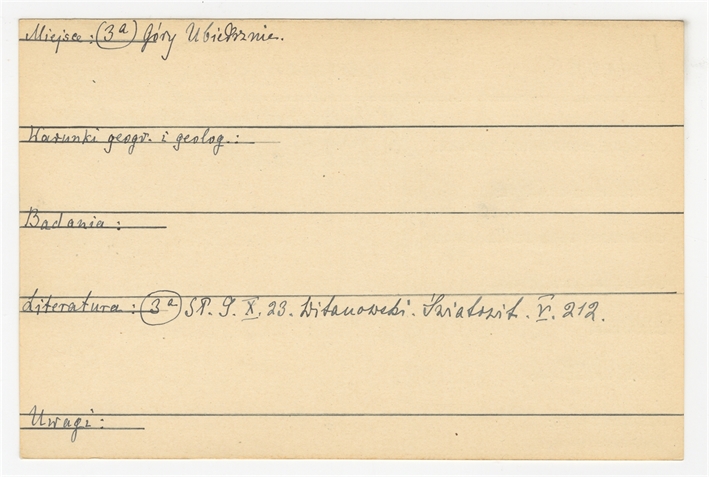 Miejsce: (3a) Góry Ubiedrznie.
Warunki geogr. i geolog.:
Badania:
Literatura: (3a) St. G. X. 23. Witanowski. Światowit. V. 212.
Uwagi: